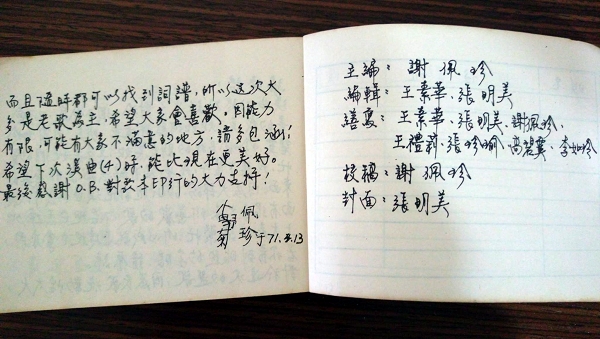 而且隨時都可以找到詞譜，所以這次大
多是老歌為主，希望大家會喜歡。因能力
有限，可能有大家不滿意的地方，請多包涵！
希望下次漢曲(4)時，能比現在更美好。
最後感謝O.B.對歌本印行的大力支持！
佩
珍于71.3.13
主編：謝佩珍
編輯：王素華、張明美
繕寫：王素華、張明美、謝佩珍、
王禮莉、張珍瑜、高碧霙、李如玲
校稿：謝佩珍
封面：張明美